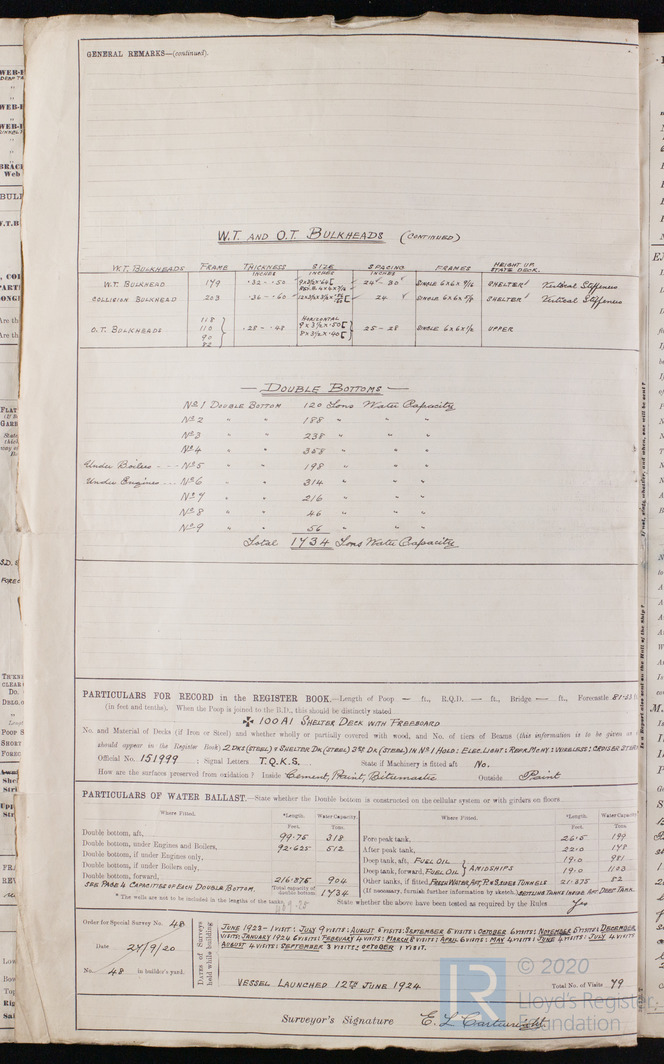 GENERAL REMARKS—(continued).
W.T. AND O.T. BULKHEADS (CONTINUED)
W.T. BULKHEADS FRAME THICKNESS INCHES SIZE INCHES SPACING INCHES FRAMES HEIGHT UP. STATE DECK.
W.T. BULKHEAD 179 .32 - .50 24 - 30 SINGLE 6x6x 9/16 SHELTER Vertical Stiffeners
COLLISION BULKHEAD 203 .36 - .60 24 SINGLE SHELTER Vertical Stiffeners
O.T. BULKHEADS 118 110 90 82 .28 - .48 HORIZONTAL 9 x 3½ x .50 [ 8 x 3½ x .40 [ 25 - 28 SINGLE UPPER
— DOUBLE BOTTOMS —
No 1 DOUBLE BOTTOM 120 Tons Water Capacity
No 2 " " 188 " " "
No 3 " " 238 " " "
No 4 " " 358 " " "
Under Boilers - - - No 5 " " 198 " " "
Under Engines - - - No 6 " " 314 " " "
No 7 " " 216 " " "
No 8 " " 46 " " "
No 9 " " 56 " " "
Total 1734 Tons Water Capacity
PARTICULARS FOR RECORD in the REGISTER BOOK.—Length of Poop — ft., R.Q.D. — ft., Bridge — ft., Forecastle 81.23
(in feet and tenths). When the Poop is joined to the B.D., this should be distinctly stated
✠ 100 A1 SHELTER DECK WITH FREEBOARD
No. and Material of Decks (if Iron or Steel) and whether wholly or partially covered with wood, and No. of tiers of Beams (this information is to be given as
should appear in the Register Book) 2 DKS (STEEL) & SHELTER DK (STEEL) 3RD DK (STEEL) IN No 1 HOLD: ELEC. LIGHT: REFR. MCHY: WIRELESS: CRUISER STERN
Official No. 151999 : Signal Letters T.Q.K.S. State if Machinery is fitted aft No.
How are the surfaces preserved from oxidation? Inside Cement, Paint, Bitumastic Outside Paint
PARTICULARS OF WATER BALLAST.—State whether the Double bottom is constructed on the cellular system or with girders on floors
Where Fitted. *Length. Feet. Water Capacity. Tons. Where Fitted. *Length. Feet. Water Capacity Tons.
Double bottom, aft, 99.75 318 Fore peak tank, 26.5 199
Double bottom, under Engines and Boilers, 92.625 512 After peak tank, 22.0 178
Double bottom, if under Engines only, Deep tank, aft, FUEL OIL } AMIDSHIPS 19.0 981
Double bottom, if under Boilers only, Deep tank, forward, FUEL OIL } 19.0 1103
Double bottom, forward, 216.375 904 Other tanks, if fitted, FRESH WATER, AFT, P & S SIDES TUNNELS 21.375 82
SEE PAGE 4 CAPACITIES OF EACH DOUBLE BOTTOM. Total capacity of double bottom 1734 (If necessary, furnish further information by sketch.) SETTLING TANKS INSIDE AFT DEEP TANK
* The wells are not to be included in the lengths of the tanks. State whether the above have been tested as required by the Rules Yes
Order for Special Survey No. 48
Date 24/9/20
No. 48 in builder's yard.
Dates of Surveys held while building
JUNE 1923 - 1 VISIT: JULY 9 VISITS: AUGUST 5 VISITS: SEPTEMBER 8 VISITS: OCTOBER 6 VISITS: NOVEMBER VISITS: DECEMBER
VISITS: JANUARY 1924 6 VISITS: FEBRUARY 4 VISITS: MARCH 8 VISITS: APRIL 6 VISITS: MAY 4 VISITS: JUNE 4 VISITS: JULY 4 VISITS
AUGUST 4 VISITS: SEPTEMBER 3 VISITS: OCTOBER 1 VISIT.
VESSEL LAUNCHED 12TH JUNE 1924. Total No. of Visits 79
Surveyor's Signature E. L. Cartwright
© 2020
Lloyd's Register
Foundation
LR